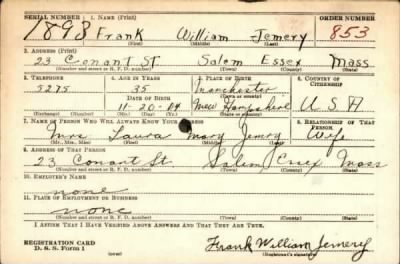 SERIAL NUMBER 1. NAME (Print) ORDER NUMBER
1893 Frank William Jemery 853
(First) (Middle) (Last)
2. ADDRESS (Print)
23 Conant St Salem Essex Mass
(Number and street or R. F. D. number) (Town) (County) (State)
3. TELEPHONE 4. AGE IN YEARS 5. PLACE OF BIRTH 6. COUNTRY OF CITIZENSHIP
5275 35 Manchester
DATE OF BIRTH (Town or county)
11-20-04 New Hampshire U S A
(Exchange) (Number) (Mo.) (Day) (Yr.) (State or country)
7. NAME OF PERSON WHO WILL ALWAYS KNOW YOUR ADDRESS 8. RELATIONSHIP OF THAT PERSON
Mrs Laura Mary Jemry Wife
(Mr., Mrs., Miss) (First) (Middle) (Last)
9. ADDRESS OF THAT PERSON
23 Conant St. Salem Essex Mass
(Number and street or R. F. D. number) (Town) (County) (State)
10. EMPLOYER'S NAME
none
11. PLACE OF EMPLOYMENT OR BUSINESS
none
(Number and street or R. F. D. number) (Town) (County) (State)
I AFFIRM THAT I HAVE VERIFIED ABOVE ANSWERS AND THAT THEY ARE TRUE.
REGISTRATION CARD
D. S. S. Form 1 (over) Frank William Jemery
(Registrant's signature)